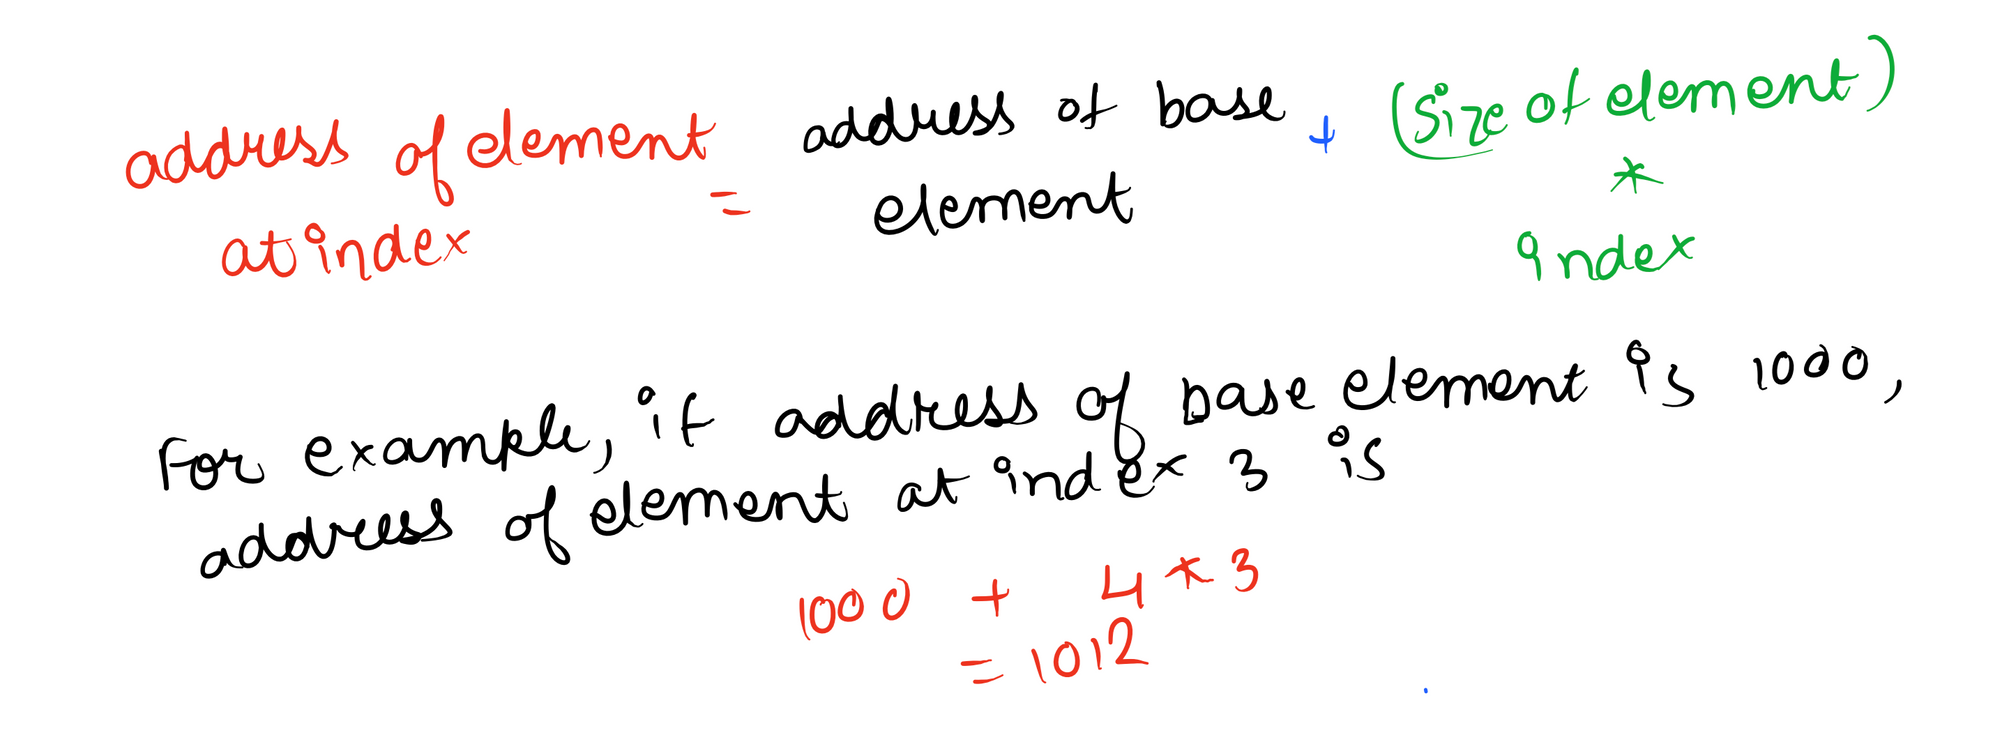 address of element = address of base + (size of element)
at index element * index
For example, if address of base element is 1000,
address of element at index 3 is
1000 + 4 * 3
= 1012